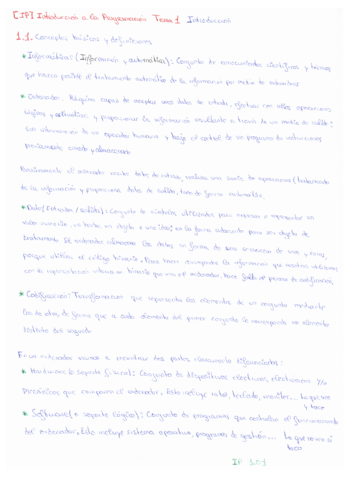 [IP] Introducción a la Programación Tema 1 Introducción
1.1. Conceptos básicos y definiciones
* Informática: (Información y automática): Conjunto de conocimientos científicos y técnicos
que hacen posible el tratamiento automático de la información por medio de ordenadores
* Ordenador: Máquina capaz de aceptar unos datos de entrada, efectuar con ellos operaciones
lógicas y aritméticas y proporcionar la información resultante a través de un medio de salida;
sin intervención de un operador humano y bajo el control de un programa de instrucciones
previamente creado y almacenado
el ordenador recibe datos de entrada, realiza una serie de operaciones (tratamiento
de la información y proporciona datos de salida, todo de forma automática.
* Datos (Entrada / salida): Conjunto de símbolos utilizados para expresar o representar un
valor numérico, un hecho, un objeto o una idea; en la forma adecuada para ser objeto de
tratamiento. El ordenador almacena los datos en forma de una secuencia de unos y ceros,
porque utiliza el código binario. Para hacer corresponder la información que nosotros utilizamos
con la representación interna en binario que usa el ordenador, hace falta un proceso de codificación.
* Codificación: Transformación que representa los elementos de un conjunto mediante
los de otro, de forma que a cada elemento del primer conjunto le corresponde un elemento
distinto del segundo
En un ordenador vamos a encontrar dos partes claramente diferenciadas:
* Hardware (o soporte físico): Conjunto de dispositivos electrónicos, electromecánicos
que componen el ordenador, Esto incluye ratón, teclado, monitor... Lo que veo
y toco
* Software (o soporte lógico): Conjunto de programas que controlan el funcionamiento
del ordenador, Esto incluye sistema operativo, programas de gestión... Lo que no
toco
IP 1.0.1